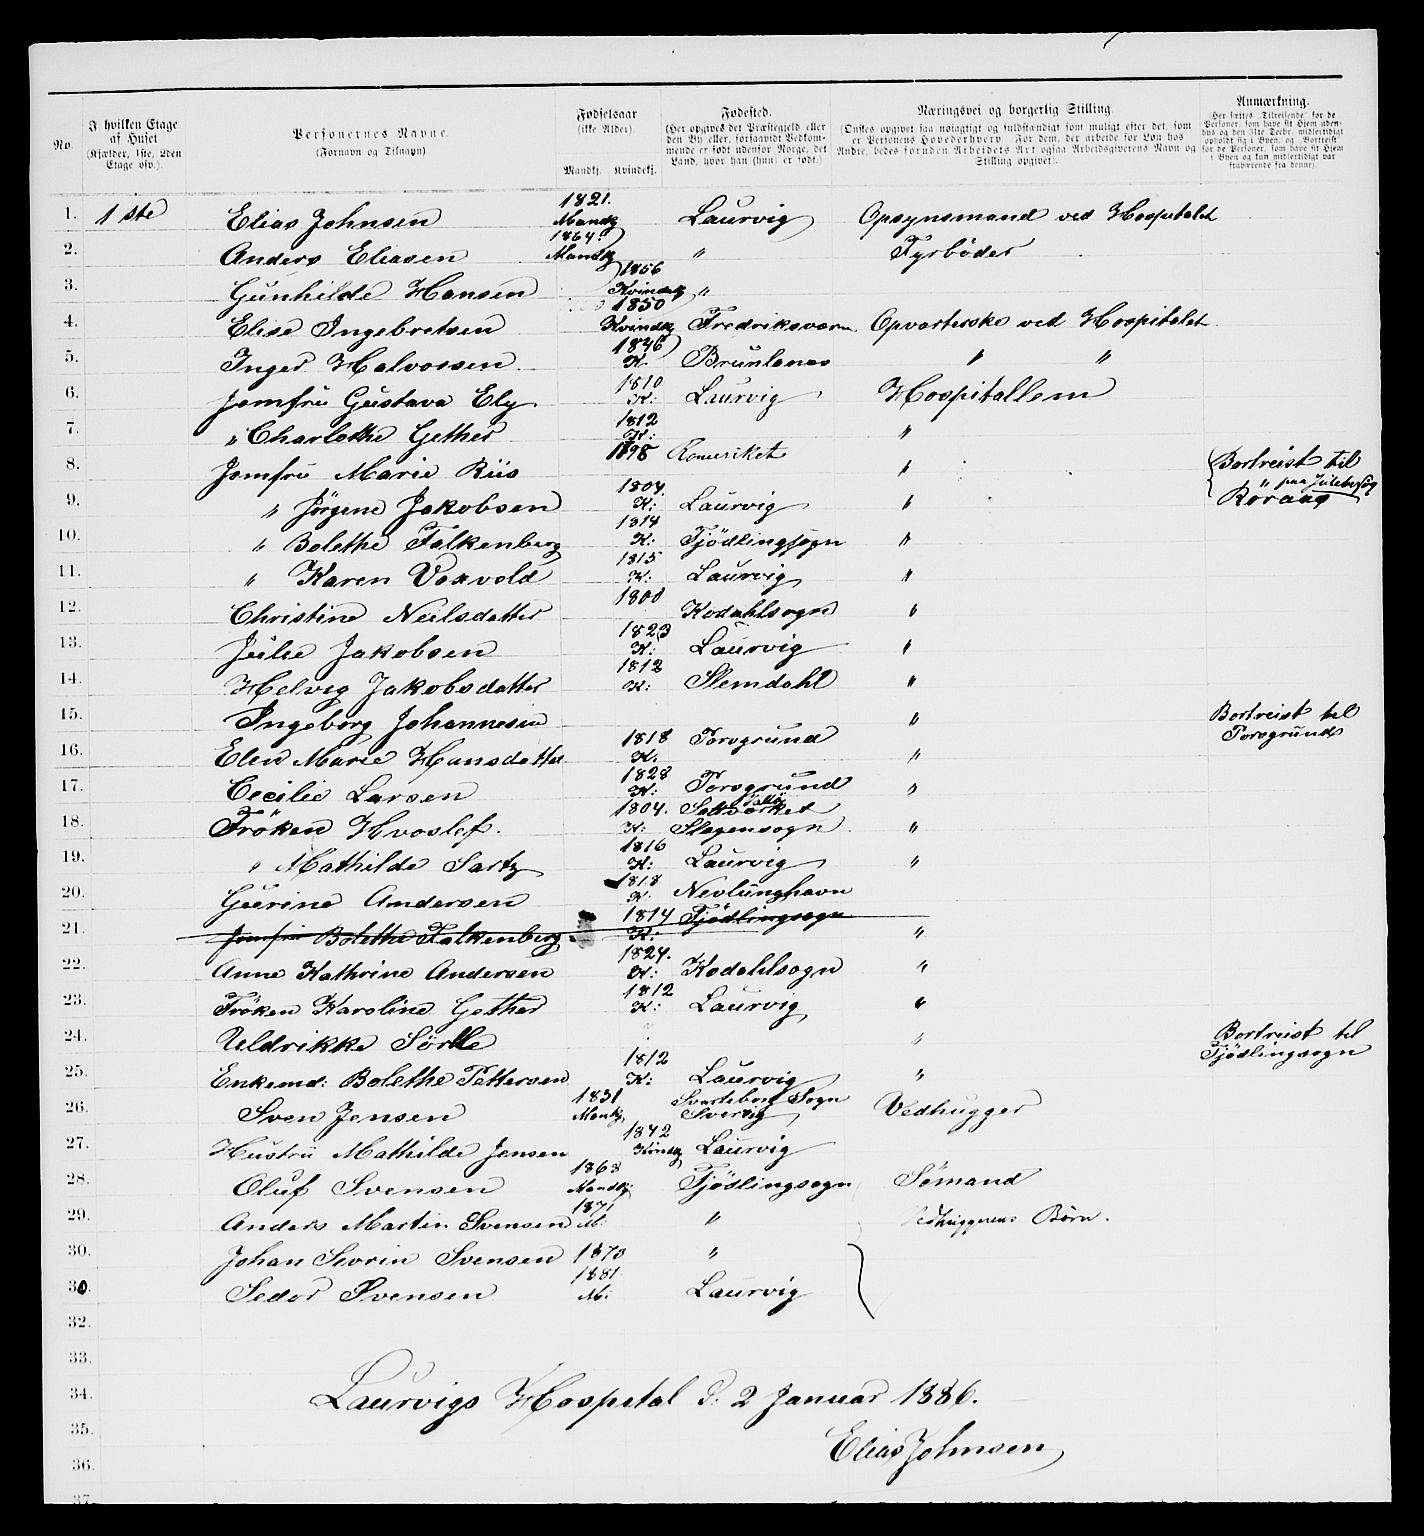 No.
I hvilken Etage af Huset (Kjælder, 1ste, 2den Etage osv.).
Personernes Navne. (Fornavn og Tilnavn)
Fødselsaar (ikke Alder) Mandkj. Kvindekj.
Fødested. (Her opgives det Præstegjeld eller den By eller, forsaavidt Vedkommende er født udenfor Norge, det Land, hvor han (hun) er født.)
Næringsvei og borgerlig Stilling. (Ønskes opgivet saa nøiagtigt og fuldstændigt som muligt efter det, som er Personens Hovederhverv. For dem, der arbeide for Løn hos Andre, bedes foruden Arbeidets Art ogsaa Arbeidsgiverens Navn og Stilling opgivet).
Anmærkning.
1. 1 ste Elias Johnsen 1821. Mandkj Laurvig Opsynsmand ved Hospitalet
2. Anders Eliasen 1864. Mandkj " Fyrböder
3. Gunhilde Hansen 1856 Kvindekj "
4. Elise Ingebretsen 1850 Kvindkj Fredriksværn Opvarterske ved Hospitalet
5. Inger Halvorsen 1846 K. Brunlanes " "
6. Jomfru Gustava Ely 1810 K: Laurvig Hospitallem
7. " Charlothe Gether 1812 K: "
8. Jomfru Marie Riis 1798 Romeriket " Bortreist til
9. " Jørgine Jakobsen 1804. K: Laurvig " " paa Julebesøg
10. " Bolethe Falkenberg 1814 K: Tjödlingsogn "
11. " Karen Voxvold 1815 K: Laurvig "
12. Christine Neilsdatter 1800 Kodahlsogn "
13. Julie Jakobsen 1823 K: Laurvig "
14. Helvig Jakobsdatter 1812 K: Slemdahl "
15. Ingeborg Johannesen " Bortreist til Porsgrund
16. Elen Marie Hansdatter 1818 K. Porsgrund "
17. Cecilie Larsen 1828 K: Porsgrund "
18. Fröken Hvoslef. 1804. K: Saltværket Vallö Slagensogn "
19. " Mathilde Sartz 1816 K: Laurvig "
20. Gurine Andersen 1818 K. Nevlunghavn
21. Jomfru Bolethe Falkenberg 1814 K: Tjödlingsogn "
22. Anne Kathrine Andersen 1824. K: Kodahlsogn "
23. Fröken Karoline Gether 1812 K: Laurvig "
24. Uldrikke Sörlle " Bortreist til Tjödlingsogn
25. Enkemd: Bolethe Pettersen 1812 K: Laurvig "
26. Sven Jensen 1831 Mankj Sogn Sverig Vedhugger
27. Hustru Mathilde Jensen 1842 Kvindkj Laurvig
28. Oluf Svensen 1868 Mandkj Tjödlingsogn Sömand
29. Anders Martin Svensen 1871 M. " Vedhuggerens Börn.
30. Johan Sevrin Svensen 1873 "
30 Sedor Svensen 1881 M: Laurvig
32.
33.
34. Laurvigs Hospital d: 2 Januar 1886.
35. Elias Johnsen
36.
37.